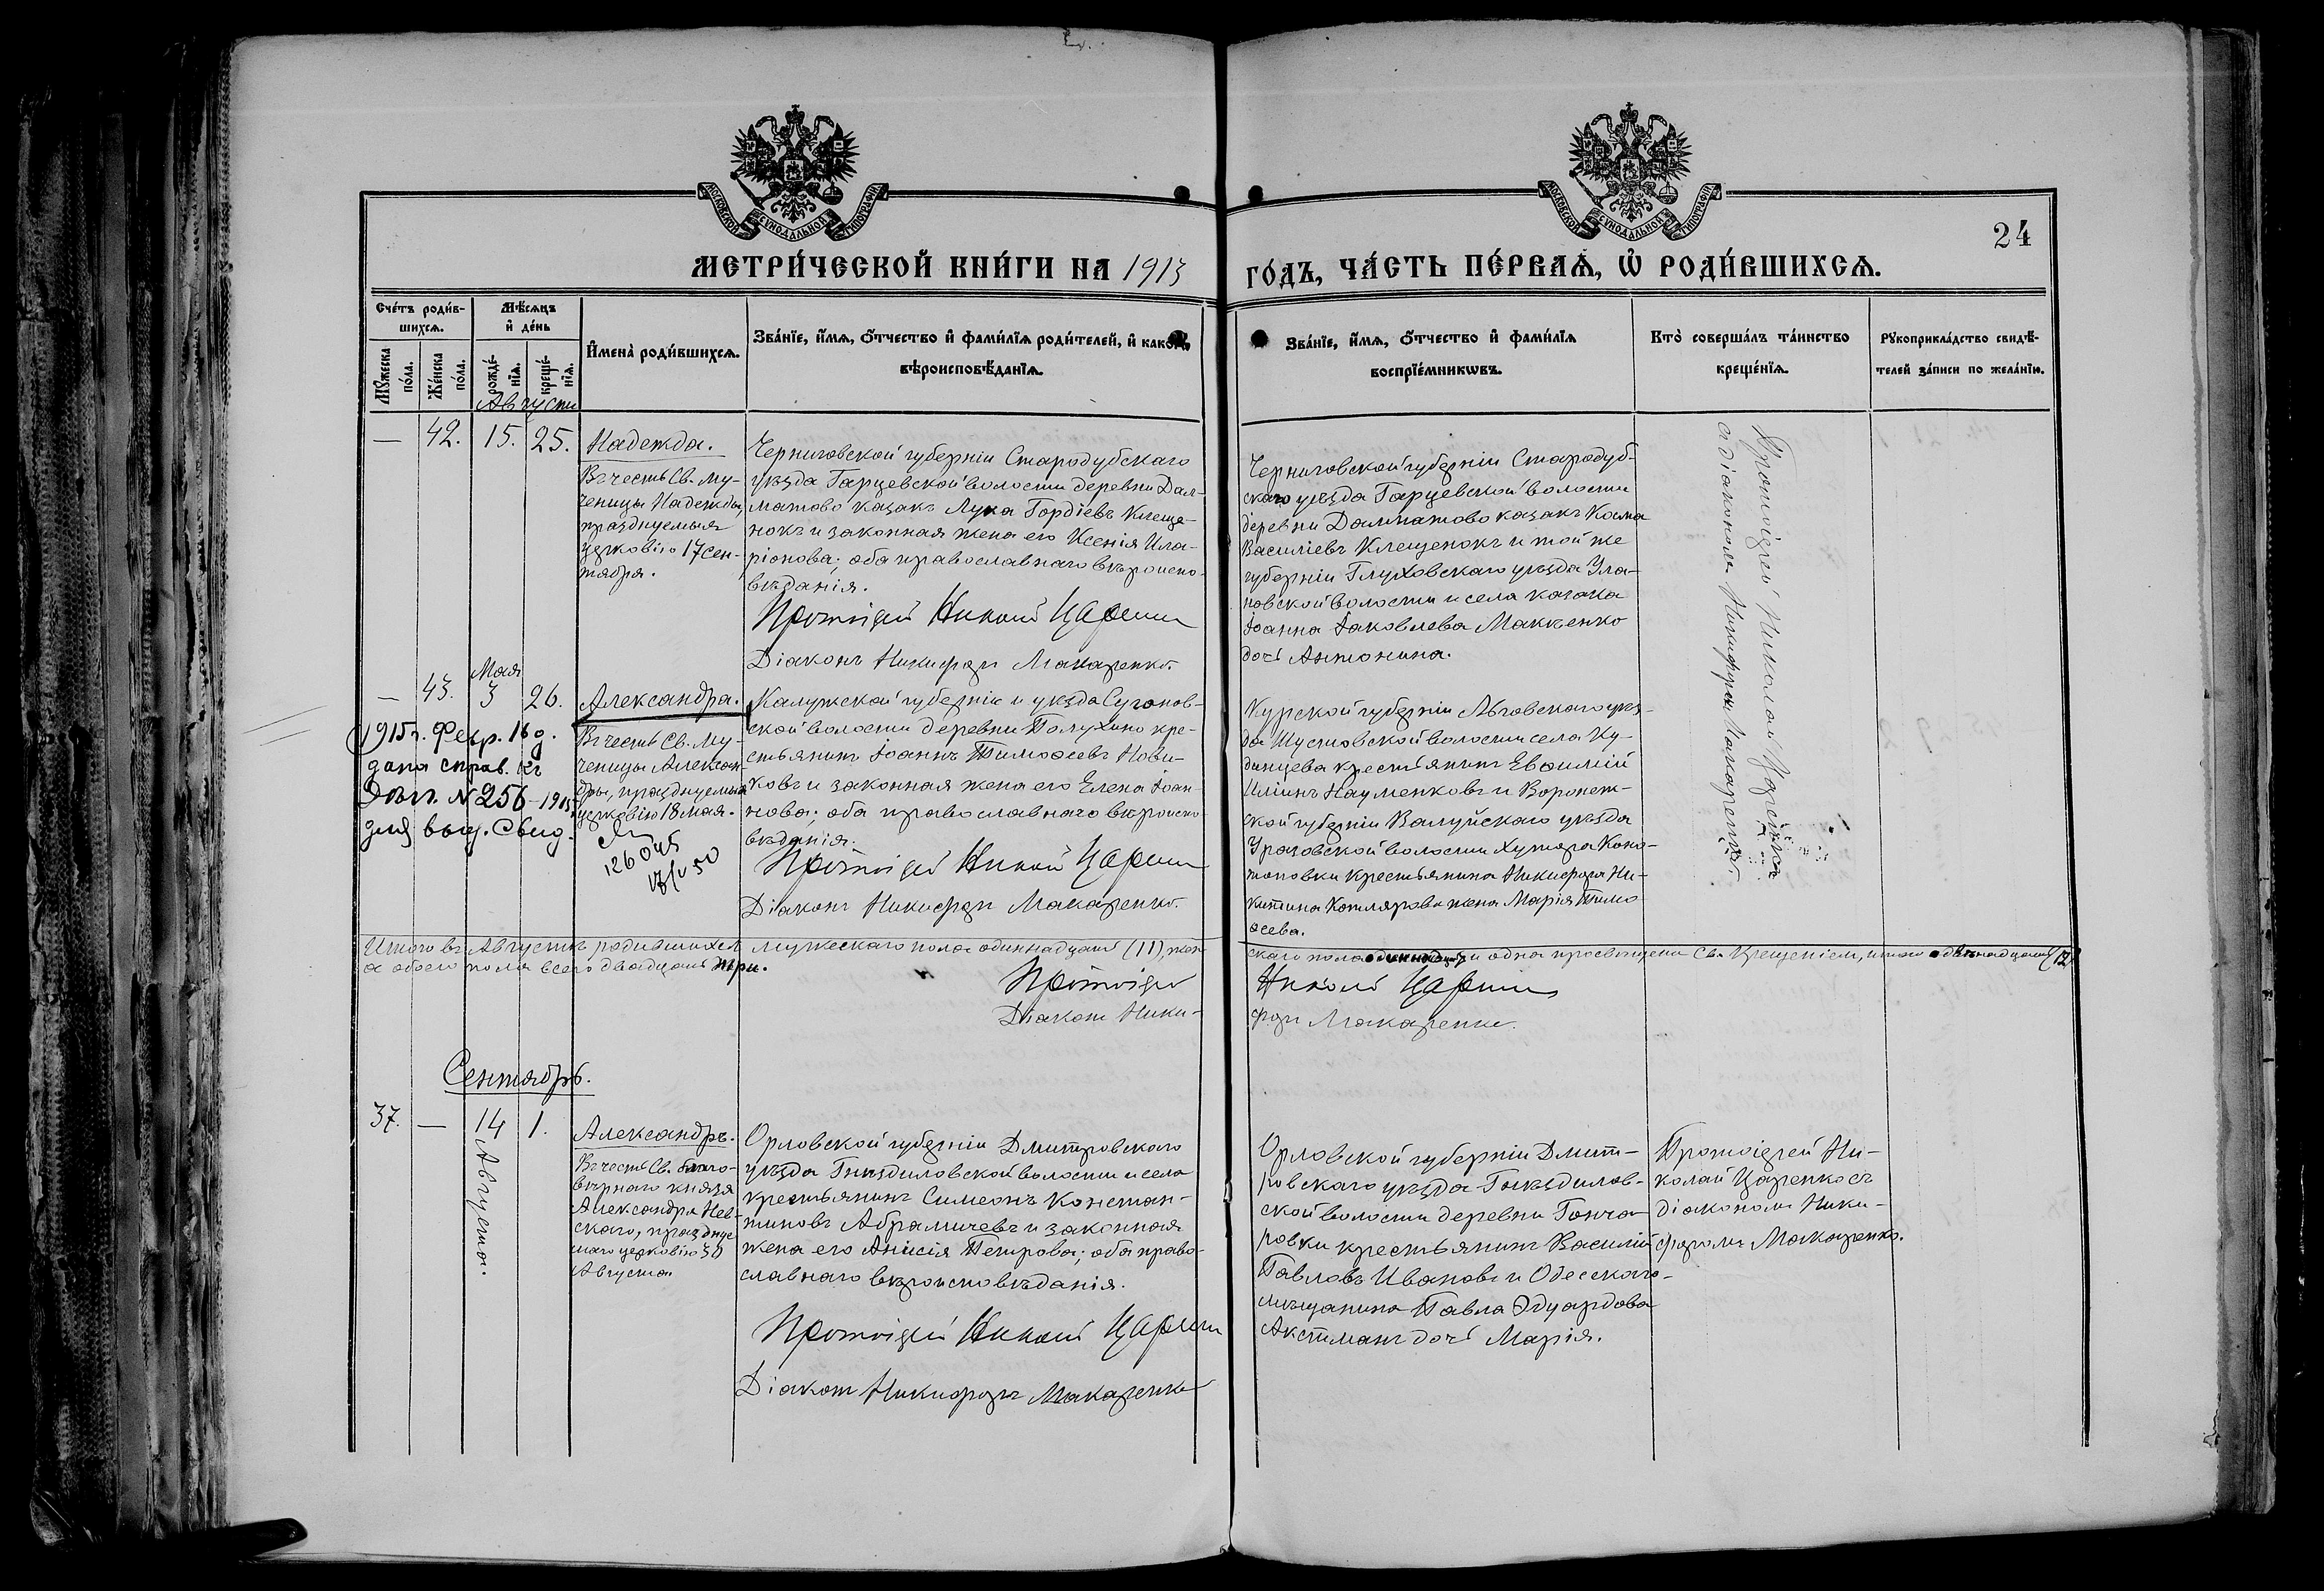 МОСКОВСКОЙ СѴНОДАЛЬНОЙ ТИПОГРАФІИ
МОСКОВСКОЙ СѴНОДАЛЬНОЙ ТИПОГРАФІИ
24
МЕТРИ́ЧЕСКОЙ КНИ́ГИ НА 1913 ГО́ДЪ, ЧА́СТЬ ПЕ́РВАѦ, Ѡ РОДИ́ВШИХСѦ.
Сче́тъ роди́в-
шихсѧ.
Мѣ́сѧцъ
и҆ де́нь
Мꙋ́жеска
по́ла.
Же́нска
по́ла.
рожде́-
нїѧ.
креще́-
нїѧ.
И҆мена̀ роди́вшихсѧ.
Зва́нїе, и҆́мѧ, ѻ҆́тчество и҆ фами́лїѧ роди́телей, и҆ како́гѡ
вѣроисповѣ́данїѧ.
Зва́нїе, и҆́мѧ, ѻ҆́тчество и҆ фами́лїѧ
воспрїе́мникѡвъ.
Кто̀ соверша́лъ та́инство
креще́нїѧ.
Рꙋкоприкла́дство свидѣ́-
телей за́писи по жела́нїю.
Августъ
— 42. 15. 25. Надежда.
Въ честь Св. Му-
ченицы Надежды,
празднуемыя
церковію 17 Сен-
тября.
Черниговской губерніи Стародубскаго
уѣзда Гарцевской волости деревни Дал-
матово казакъ Лука Гордіевъ Клеще-
нокъ и законная жена его Ксенія Ила-
ріонова; оба православнаго вѣроиспо-
вѣданія.
Протоіерей Николай Царенко
Діаконъ Никифоръ Макаренко.
Черниговской губерніи Стародуб-
скаго уѣзда Гарцевской волости
деревни Далматово казакъ Косма
Василіевъ Клещенокъ и той же
губерніи Глуховскаго уѣзда Ула-
новской волости и села казака
Іоанна Іаковлева Маккенко
дочь Антонина.
Протоіерей Николай Царенко
съ діакономъ Никифоромъ Макаренко.
Мая
— 43. 3 26. Александра.
1915 г. Февр. 16 д.
дана справ. къ
дѣлу. № 256 - 1915
для выд. Свид.
Въ честь Св. Му-
ченицы Алексан-
дры, празднуемыя
церковію 18 мая.
126045
50
Калужской губерніи и уѣзда Сугонов-
ской волости деревни Полухино кре-
стьянинъ Іоаннъ Тимоѳеевъ Нови-
ковъ и законная жена его Елена Іоан-
нова; оба православнаго вѣроиспо-
вѣданія.
Протоіерей Николай Царенко
Діаконъ Никифоръ Макаренко.
Курской губерніи Льговскаго уѣз-
да Шустовской волости села Ку-
динцева крестьянинъ Евѳимій
Иліинъ Науменковъ и Воронеж-
ской губерніи Валуйскаго уѣзда
Уразовской волости хутора Коно-
топовки крестьянина Никифора Ни-
китина Котлярова жена Марія Тимо-
ѳеева.
Итого въ Августѣ родившихся мужескаго пола одиннадцать (11), жен-
скаго пола одиннадцать и одна просвѣщена Св. Крещеніем, итого двѣнадцать (12)
а обоего пола всего двадцать три.
Протоіерей Николай Царенко
Діаконъ Ники-
форъ Макаренко.
Сентябрь.
37. — 14 1. Александръ.
Августа.
Въ честь Св. благо-
вѣрнаго князя
Александра Нев-
скаго, праздную-
маго церковію 30
Августа.
Орловской губерніи Дмитровскаго
уѣзда Гнѣздиловской волости и села
крестьянинъ Симеонъ Констан-
тиновъ Абрамичевъ и законная
жена его Анисія Петрова; оба право-
славнаго вѣроисповѣданія.
Протоіерей Николай Царенко
Діаконъ Никифоръ Макаренко
Орловской губерніи Дмит-
ровскаго уѣзда Гнѣздилов-
ской волости деревни Гонча-
ровки крестьянинъ Василій
Павловъ Ивановъ и Одесскаго
мѣщанина Павла Эдуардова
Акстманъ дочь Марія.
Протоіерей Ни-
колай Царенко съ
діакономъ Ники-
форомъ Макаренко.